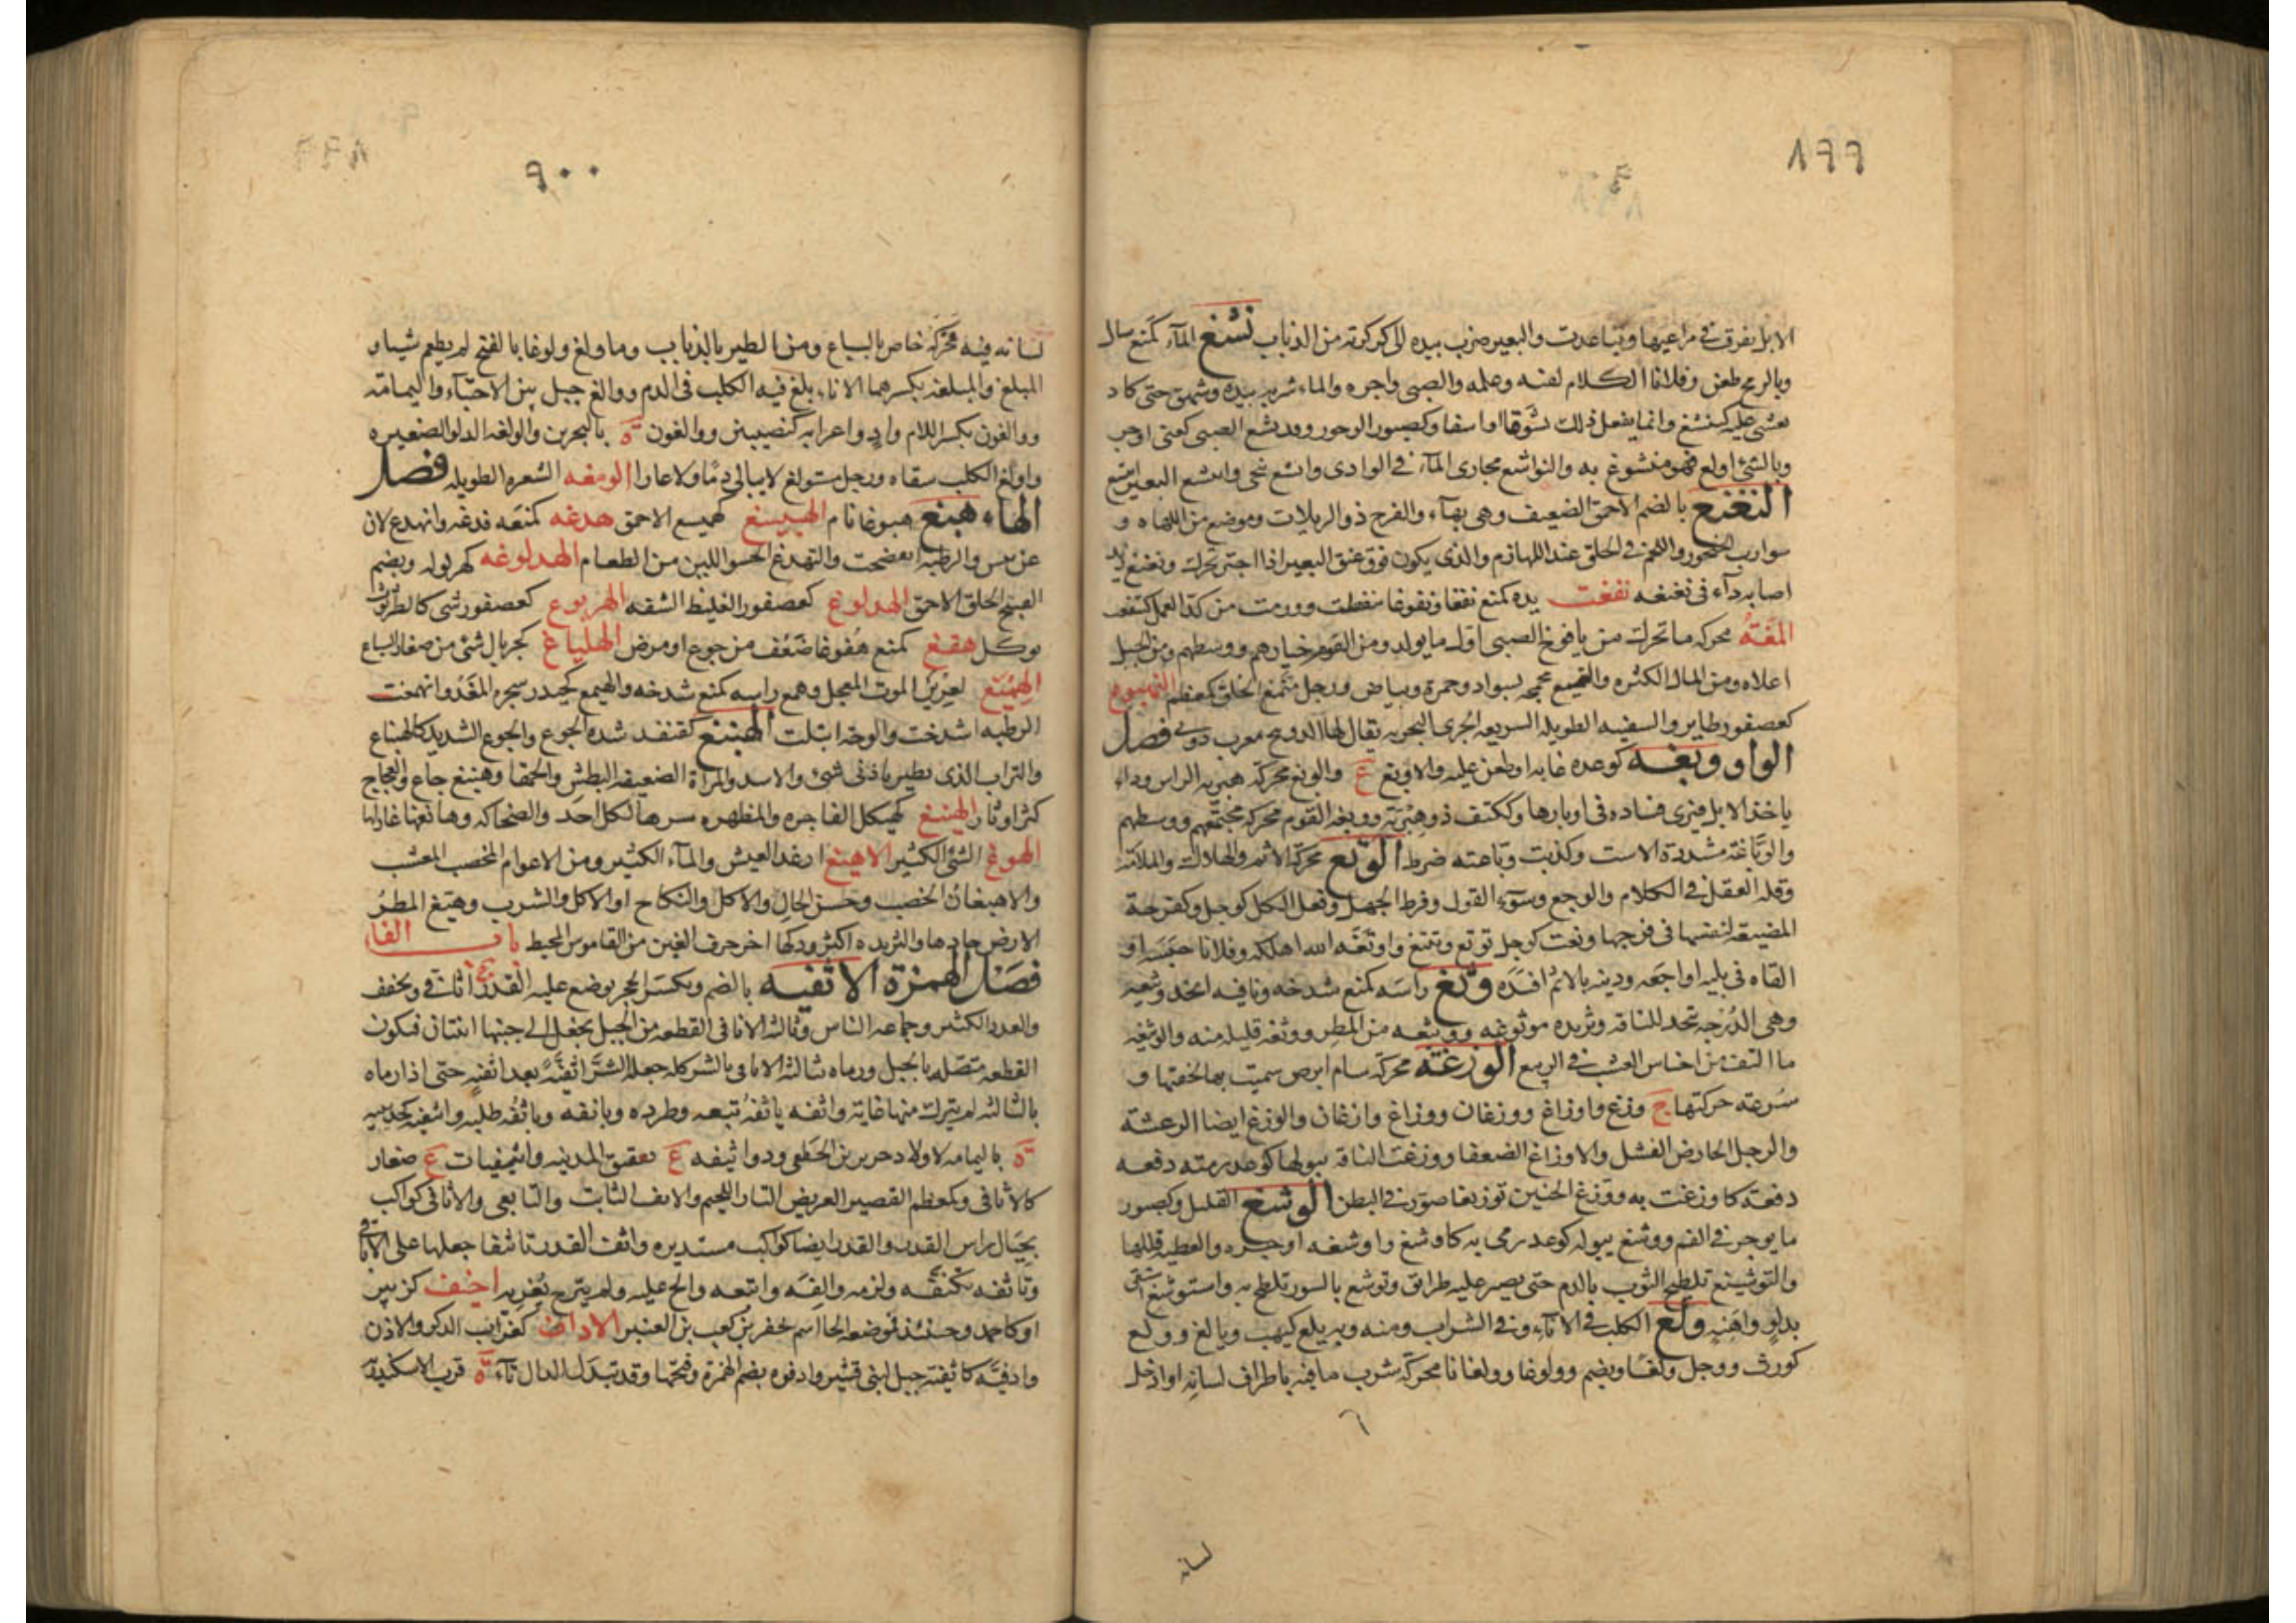 ٨٩٩
الابل تفرق في مراعيها وتباعدت والبعير ضرب بيده الى كركرته من الذباب نشغ المآء كمنع سال
وبالرمح طعن وفلانا الكلام لقنه وعلمه والصبي واجره والماء شربه بيده وشهق حتى كاد
يغشى عليه كتنشغ وانما يفعل ذلك تشوقا او اسفا وكصبور الوجور وقد نشغ الصبي كعنى اوجر
وبالشئ اولع فهو منشوغ به والنواشغ مجارى المآء في الوادى وانشغ تنحى وانتشغ البعير
النغنغ بالضم الاحمق الضعيف وهى بهآء والفرج ذو الربلات وموضع من اللهاه و
سوارب الخنجور واللحم في الحلق عند اللهازم والذى يكون فوق عنق البعير اذا اجتر تحرك ونغنغ
اصابه دآء في نغنغه نفغت يده كمنع نفغا ونفوغا تنفطت وورمت من كد العمل كتنفغت
محركه ما تحرك من يافوخ الصبي اول ما يولد ومن القوم خيارهم ووسطهم ومن الجبل
اعلاه ومن المال الكثره والتنميغ مجمجه بسواد وحمرة وبياض ورجل منمغ الخلق كمعظم النهبوغ
كعصفور طاير والسفينه الطويله السريعه الجرى البحريه يقال لها الدونيج معرب دونى فصل
الواو وبغه كوعده عابه او طعن عليه والاوبغ ع والوبغ محركه هبريه الراس وداء
ياخذ الابل فيرى فساده في اوبارها وككتف ذو هبرية ووبغه القوم محركه مجتمعهم ووسطهم
والوباغة مشددة الاست وكذبت وباعته ضرط الوتغ محركة الاثم والهلاك والملامة
وقله العقل في الكلام والوجع وسوء القول وفرط الجهل وفعل الكل كوجل وكفرحة
المضيعه لنفسها في فرجها ونعت كوجل توتغ وتيتغ واوتغه الله اهلكه وفلانا حبسه او
القاه في بليه او اوجعه ودينه بالاثم افسده وثغ راسه كمنع شدخه ونافيه اتخذ وثيغه
وهى الدرجه تتخذ للناقه وثريده موثوغه ووثيغه من المطر ووثغه قليل منه والوثيغه
ما التف من اجناس العشب في الربيع الوزغة محركة سام ابرص سميت بها لخفتها و
سرعة حركتها ج وزغ واوزاغ ووزغان ووزاغ وازغان والوزغ ايضا الرعشة
والرجل الحارض الفشل والاوزاغ الضعفا ووزغت الناقة ببولها كوعد رمته دفعه
دفعة كاوزغت به ووزغ الجنين توزيغا صور في البطن الوشغ القليل وكصبور
ما يوجر في الفم ووشغ ببوله كوعد رمى به كاوشغ واوشغه اوجره والعطيه قللها
والتوشيغ تلطيخ الثوب بالدم حتى يصير عليه طرائق وتوشغ بالسوء تلطخ به واستوشغ استقى
بدلو واهنة ولغ الكلب في الاناء وفي الشراب ومنه وبه يلغ كيهب ويالغ وولغ
كورث ووجل ولغا ويضم وولوغا وولغانا محركة شرب ما فيه باطراف لسانه او ادخل
لسانه
٩٠٠
لسانه فيه محركه خاص بالسباع ومن الطير بالذباب وما ولغ ولوغا بالفتح لم يطعم شيا و
الميلغ والميلغة بكسرهما الاناء يلغ فيه الكلب في الدم ووالغ جبل بين الاحساء واليمامه
ووالغون بكسر اللام واد واعرابه كنصيبين ووالغون ة بالبحرين والولغه الدلو الصغيره
واولغ الكلب سقاه ورجل مستولغ لا يبالى ذما ولا عارا الومغه الشعره الطويله فصل
الهاء هبغ هبوغا نام الهبيغ كهميع الاحمق هدغه كمنعه فدغه وانهدغ لان
عن يبس والرطبه انفضخت والتهدغ الحسو اللين من الطعام الهدلوغه كهربوله ويضم
القبيح الخلق الاحمق الهدلوغ كعصفور الغليظ الشفه الهربوغ كعصفور شى كالطرثوث
يوكل هفغ كمنع هفوغا ضعف من جوع او مرض الهلياغ كجريال شئ من صغار السباع
الهميغ كعزيز الموت المعجل وهمغ راسه كمنع شدخه والهيمغ كحيدر شجره المغد وانهمغت
الرطبه انشدخت والقرحه ابتلت الهنبغ كقنفذ شدة الجوع والجوع الشديد كالهنباغ
والتراب الذى يطير بادنى شئ والاسد والمراة الضعيفه البطش والحمقا وهنبغ جاع والعجاج
كثر وثار الهينغ كهيكل الفاجره والمظهره سرها لكل احد والضحاكه وهانغها غازلها
الهوغ الشئ الكثير الاهيغ ارغد العيش والمآء الكثير ومن الاعوام المخصب المعشب
والاهيغان الخصب وحسن الحال والاكل والنكاح او الاكل والشرب وهيغ المطر
الارض جادها والثريده اكثر ودكها اخر حرف الغين من القاموس المحيط باب الفاء
فصل الهمزة الاثفيه بالضم ويكسر الحجر يوضع عليه القدر ج اثافي ويخفف
والعدد الكثير وجماعه الناس وثالثه الاثافي القطعه من الجبل يجعل الى جنبها اثنتان فيكون
القطعه متصله بالجبل ورماه بثالثه الاثافي بالشر كله جعل الشر اثفيه بعد اثفيه حتى اذا رماه
بالثالثه لم يترك منها غاية واثفه ياثفه تبعه وطرده وياثفه وياثفه طلبه واثيفه كجهينه
ة باليمامه لاولاد جرير بن الخطفى وذو اثيفه ع بعقيق المدينه واثيفيات ع صغار
كالاثافي وكمعظم القصير العريض التار اللحيم والاثف الثابت والتابعى والاثافي كواكب
بحيال راس القدر والقدر ايضا كواكب مستديره واثف القدر تاثيفا جعلها على الاثافي
وتاثفه تكنفه ولزمه والفه واتبعه والح عليه ولم يبرح يغريه اخيف كزبير
او كاحمد وحينئذ فموضعه الخا اسم مجفر بن كعب بن العنبر الاداف كغراب الذكر والاذن
وادفيه كاثفية جبل لبنى قشير وادفوه بضم الهمزة وفتحها وقد تبدل الدال تآء ة قرب الاسكندرية